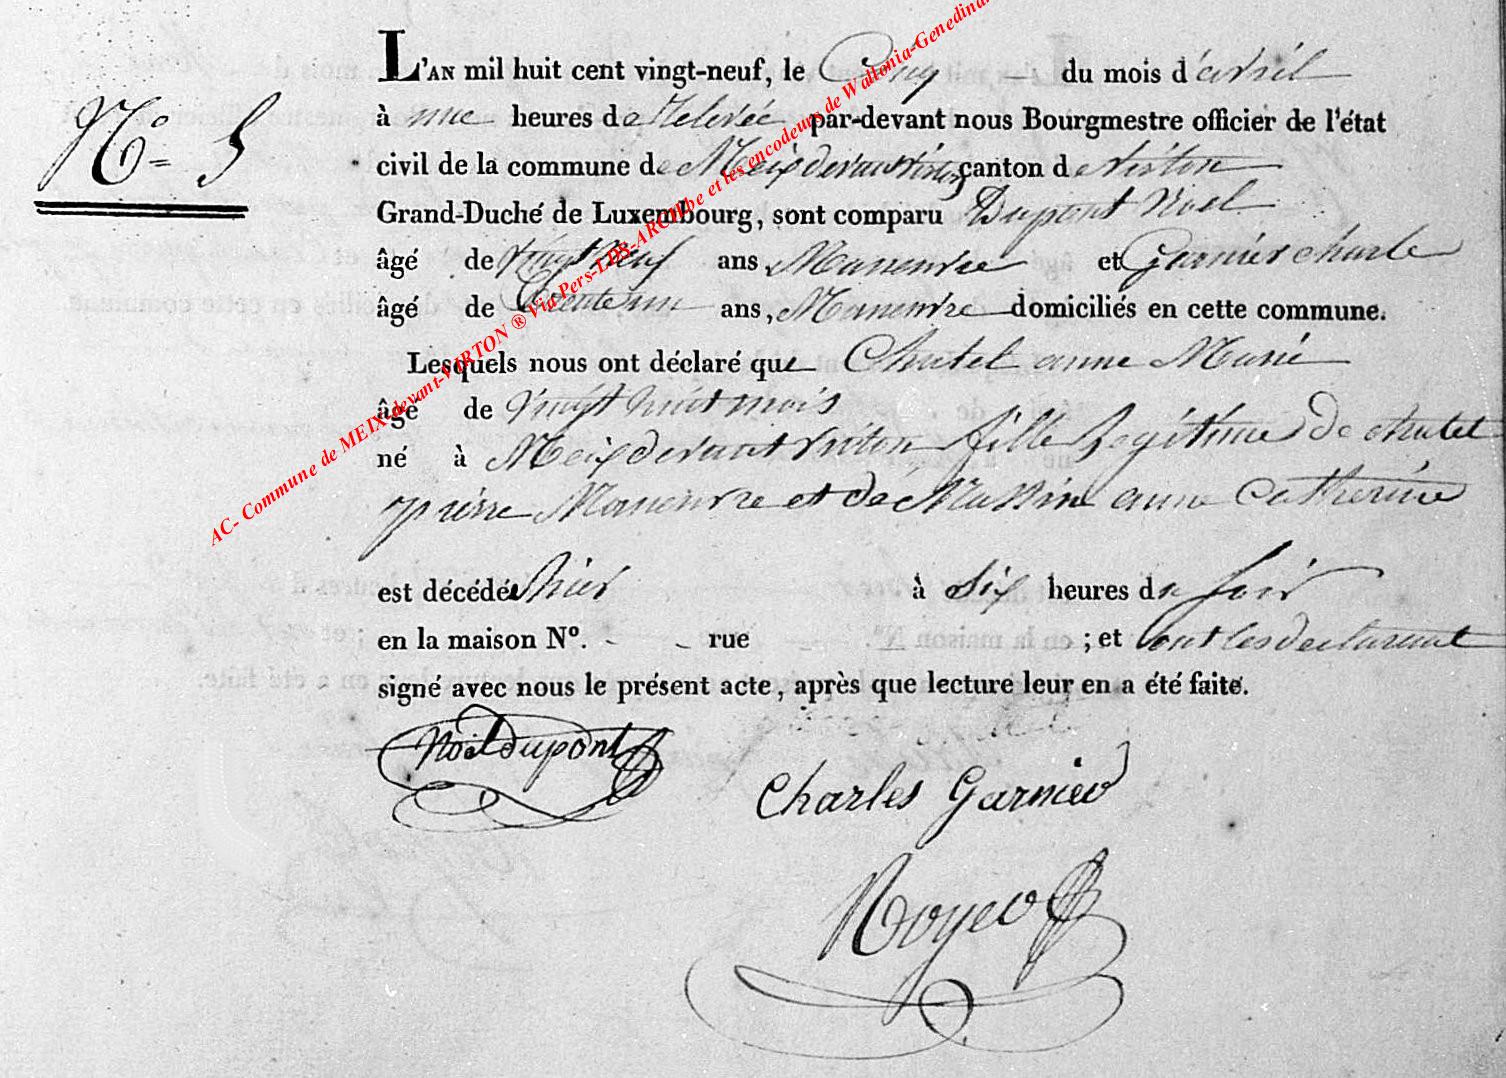 L'AN mil huit cent vingt-neuf, le Cinq du mois d'avril
N.º 5
à une heures de relevée par-devant nous Bourgmestre officier de l'état
civil de la commune de Meix devant virton canton de virton
Grand-Duché de Luxembourg, sont comparu Dupont Noel
âgé de vingt neuf ans, Manœuvre et Garnier charle
âgé de Trente un ans, Manœuvre domiciliés en cette commune.
Lesquels nous ont déclaré que Chatel anne Marie
âgé de vingt huit mois
né à Meix devant virton fille Legitime de chatel
pierre Manœuvre et de Massin anne Catherine
est décédée hier à six heures du soir
en la maison Nº. - - rue ; et ont les declarant
signé avec nous le présent acte, après que lecture leur en a été faite.
Noël dupont
Charles Garnier
Royer
AC- Commune de MEIX-devant-VIRTON ® Via Pers-LDS-ARCH.be et les encodeurs de Wallonia-Genedinar